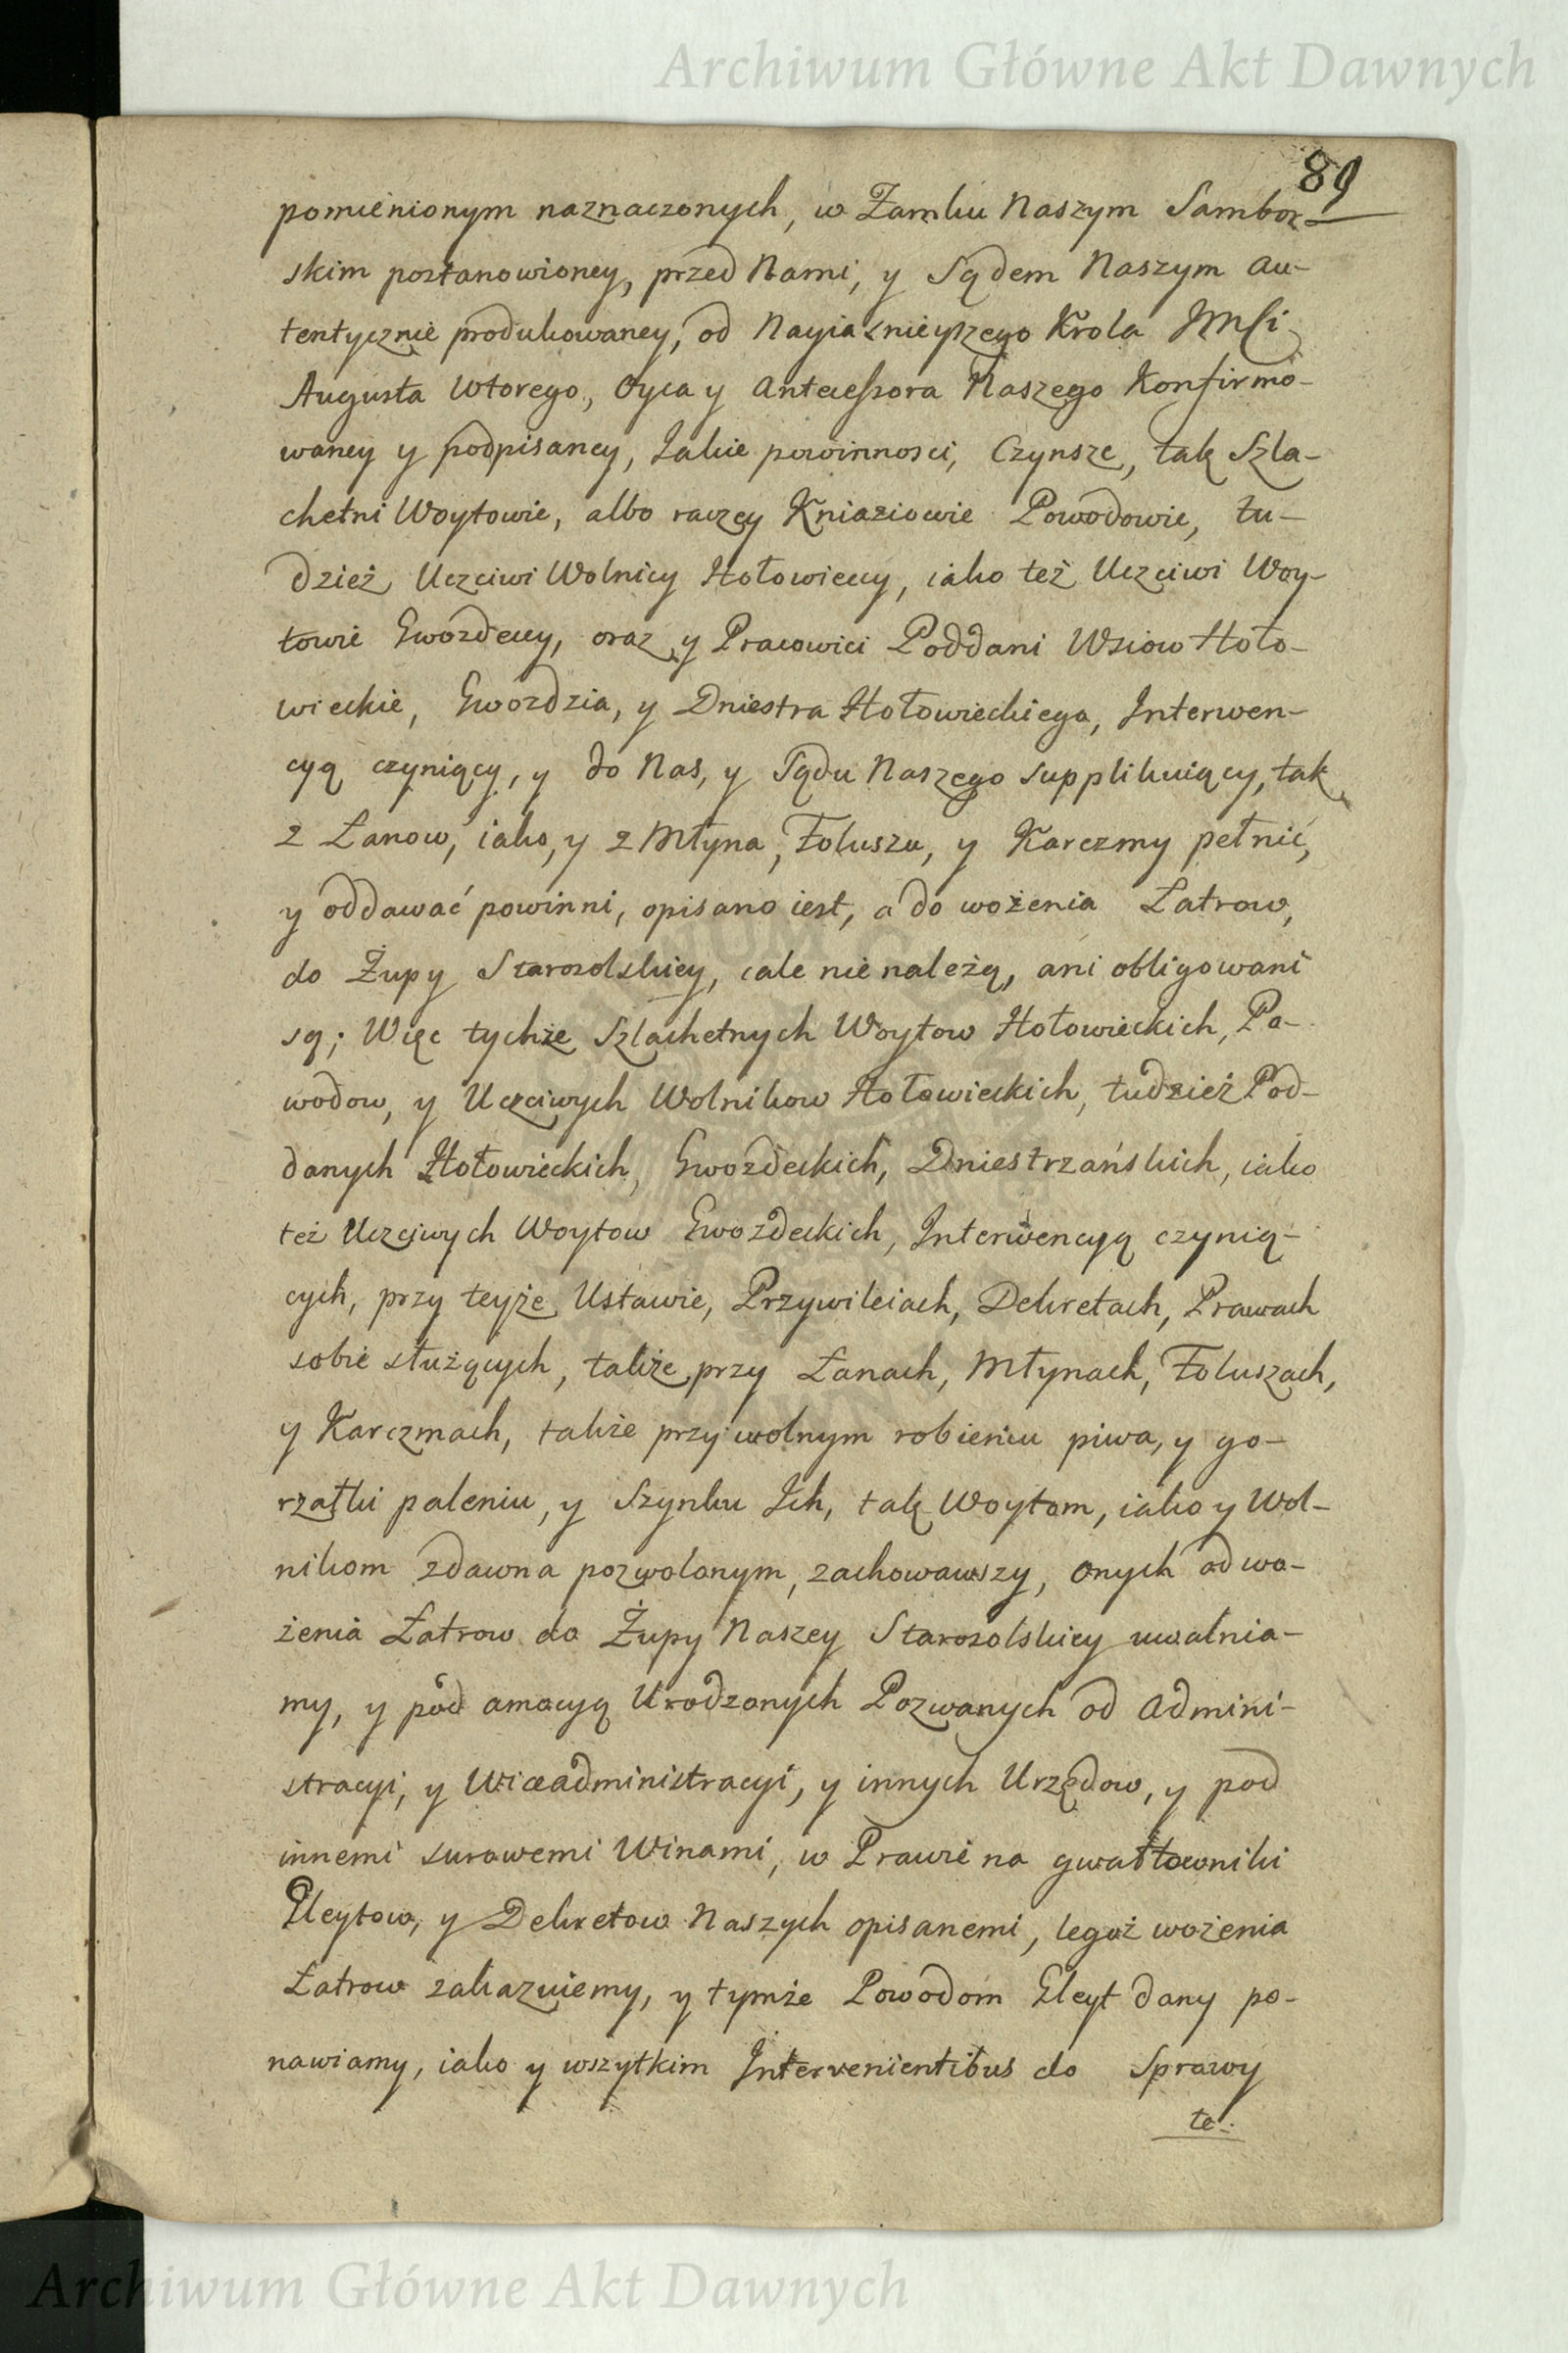 Archiwum Główne Akt Dawnych
89
pomienionym naznaczonych, w Zamku Naszym Sambor-
skim postanowioney, przed Nami, y Sądem Naszym au-
tentycznie produkowaney, od Nayiasnieyszego Krola JMsci
Augusta Wtorego, Oyca y Antecessora Naszego Konfirmo-
waney y podpisaney, Jakie powinnosci, Czynsze, tak Szla-
chetni Woytowie, albo raczey Kniaziowie Powodowie, tu-
dzież Uczciwi Wolnicy Hołowieccy, iako też Uczciwi Woy-
towie Gwozdeccy, oraz y Pracowici Poddani Wsiow Hoło-
wieckie, Gwozdzia, y Dniestra Hołowieckiego, Interwen-
cyą czyniący, y do Nas, y Sądu Naszego supplikuiący, tak
z Łanow, iako, y z Młyna, Foluszu, y Karczmy pełnić,
y oddawać powinni, opisano iest, a do wożenia Łatrow,
do Żupy Starosolskiey, cale nie należą, ani obligowani
są; Więc tychże Szlachetnych Woytow Hołowieckich, Po-
wodow, y Uczciwych Wolnikow Hołowieckich, tudzież Pod-
danych Hołowieckich, Gwozdeckich, Dniestrzańskich, iako
też Uczciwych Woytow Gwozdeckich, Interwencyą czynią-
cych, przy teyże Ustawie, Przywileiach, Dekretach, Prawach
sobie służących, także przy Łanach, Młynach, Foluszach,
y Karczmach, także przy wolnym robieniu piwa, y go-
rzałki paleniu, y Szynku Ich, tak Woytom, iako y Wol-
nikom zdawna pozwolonym, zachowawszy, onych od wo-
żenia Łatrow do Żupy Naszey Starosolskiey uwalnia-
my, y pod amocyą Urodzonych Pozwanych od Admini-
stracyi, y Wiceadministracyi, y innych Urzędow, y pod
innemi surowemi Winami, w Prawie na gwałtowniki
Gleytow, y Dekretow Naszych opisanemi, tegoż wożenia
Łatrow zakazuiemy, y tymże Powodom Gleyt dany po-
nawiamy, iako y wszytkim Intervenientibus do Sprawy
te-
Archiwum Główne Akt Dawnych